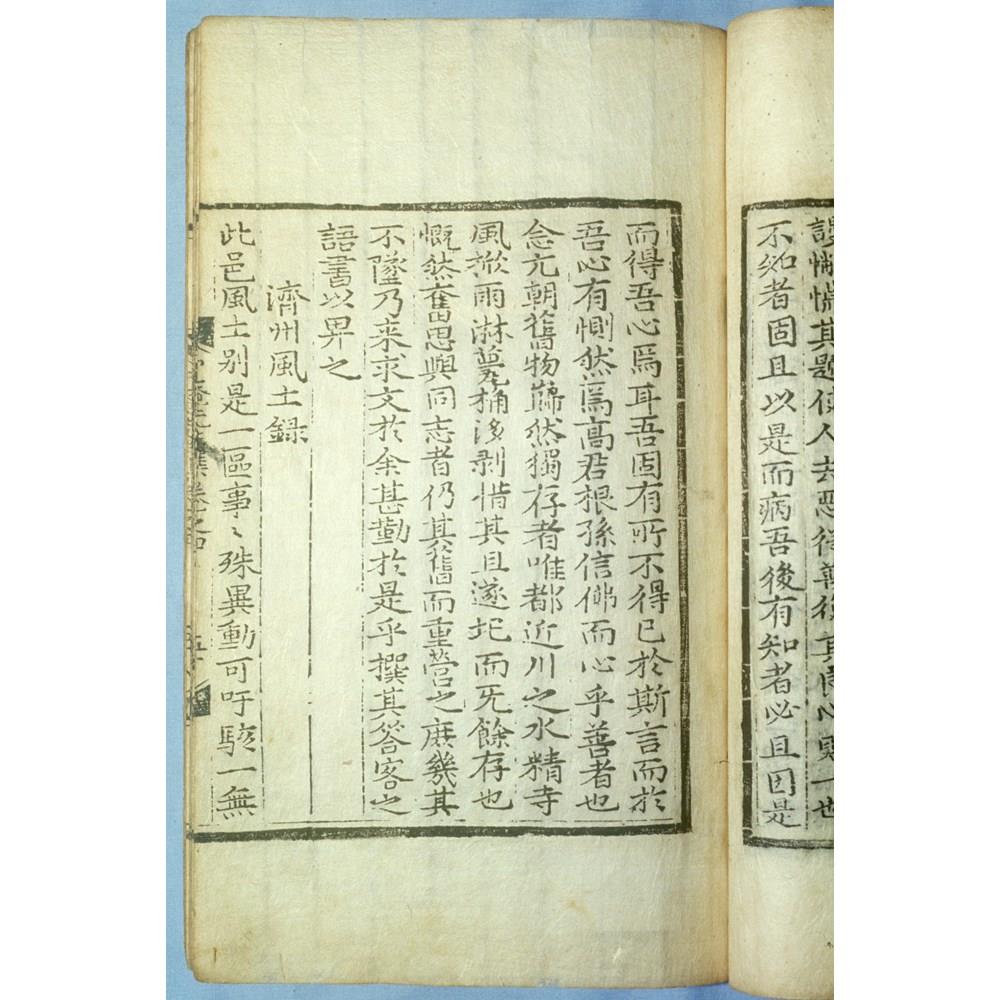 謾懶惰其題使人去惡從善復其良心
不知者固且以是而病吾後有知者必且因是
而得吾心焉耳吾固有所不得已於斯言而於
吾心有惻然焉高君根孫信佛而心乎善者也
念亢朝舊物巋然獨存者唯都近川之水精寺
風掀雨淋甍桷浸剥惜其且遂圮而旡餘存也
慨然奮思與同志者仍其舊而重營之庶幾其
不墜乃来求文於余甚勤於是乎撰其答客之
語書以畀之
濟州風土録
此邑風土別是一區事〻殊異動可吁駭一無
集卷之四